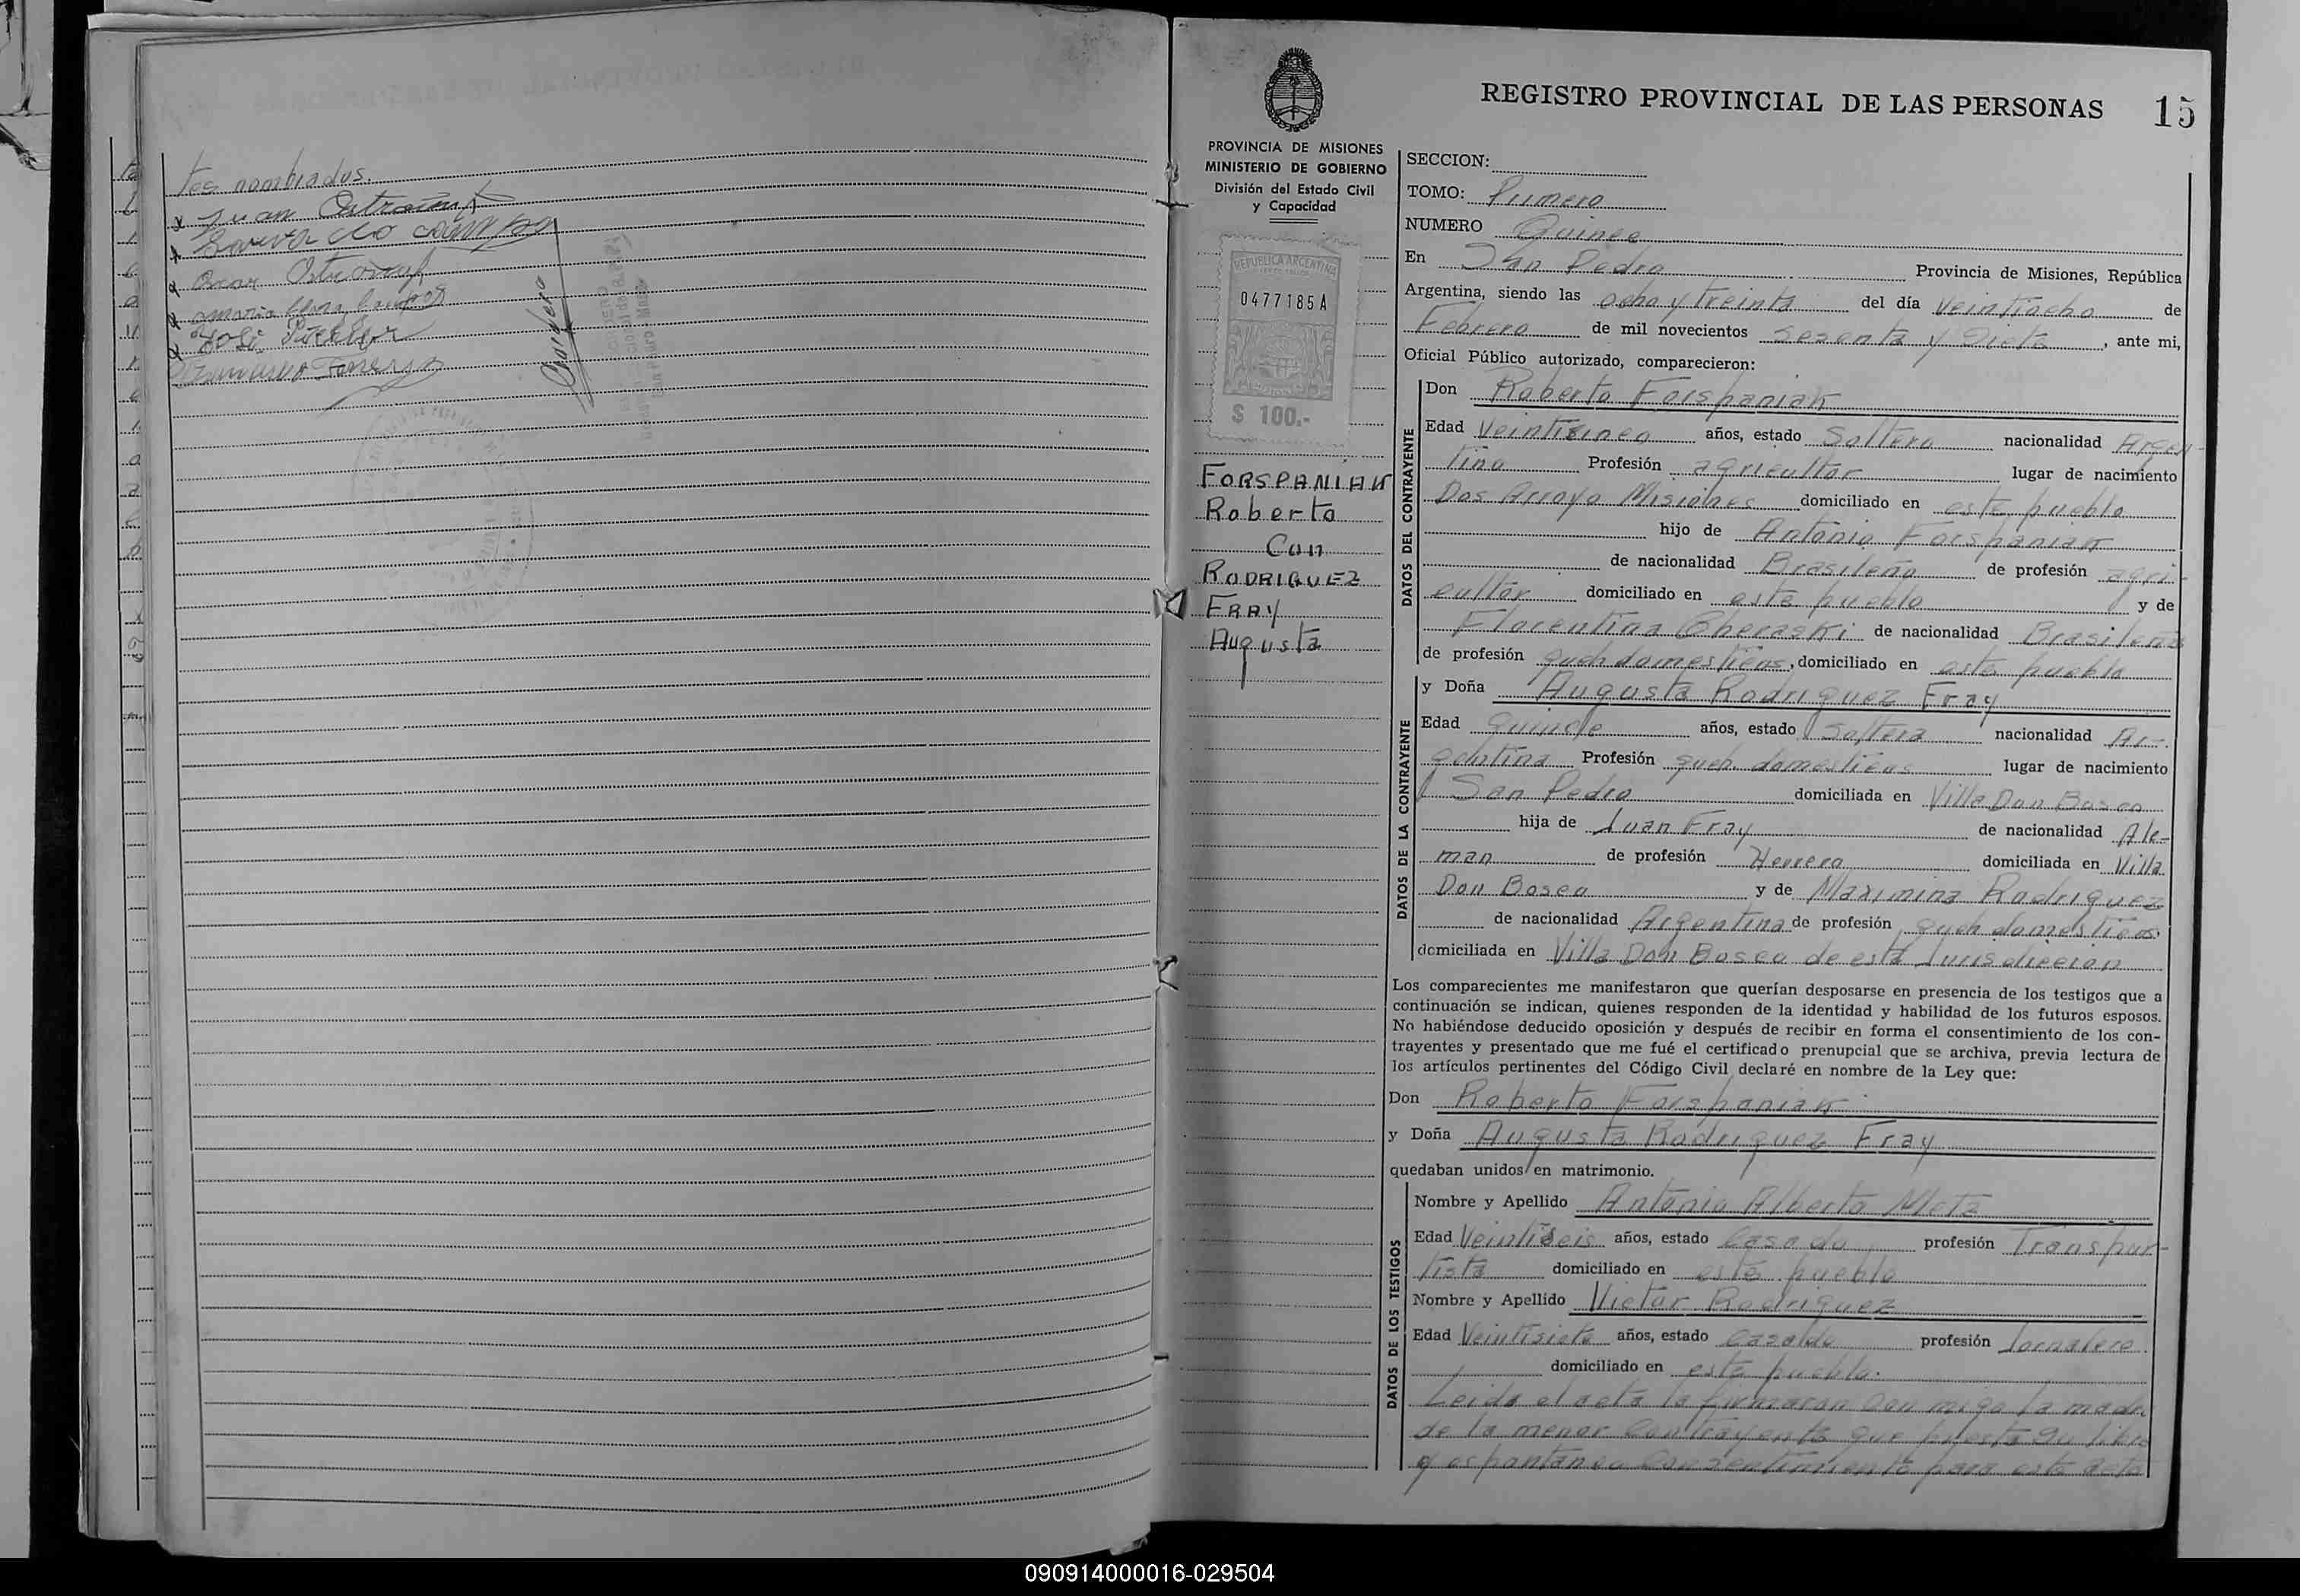 tes nombrados.
Juan
Oscar
Maria Elena Campos
José
Francisco
REGISTRO PROVINCIAL DE LAS PERSONAS 15
PROVINCIA DE MISIONES
MINISTERIO DE GOBIERNO
División del Estado Civil
y Capacidad
REPUBLICA ARGENTINA
0477185A
$ 100.-
FORSPANIAK
Roberto
Con
RODRIGUEZ
FRAY
Augusta
SECCION:
TOMO: Primero
NUMERO Quince
En San Pedro Provincia de Misiones, República
Argentina, siendo las ocho y treinta del día veintiocho de
Febrero de mil novecientos sesenta y Siete, ante mi,
Oficial Público autorizado, comparecieron:
DATOS DEL CONTRAYENTE
Don Roberto Forspaniak
Edad Veinticinco años, estado Soltero nacionalidad Argen-
tino Profesión agricultor lugar de nacimiento
Dos Arroyo Misiones domiciliado en este pueblo
hijo de Antonio Forspaniak
de nacionalidad Brasileño de profesión agri-
cultor domiciliado en este pueblo y de
Florentina Cheraski de nacionalidad Brasilena
de profesión queh domesticos, domiciliado en este pueblo
DATOS DE LA CONTRAYENTE
y Doña Augusta Rodriguez Fray
Edad quince años, estado Soltera nacionalidad Ar-
gentina Profesión queh. domesticos lugar de nacimiento
San Pedro domiciliada en Villa Don Bosco
hija de Juan Fray de nacionalidad Ale-
man de profesión Herrero domiciliada en Villa
Don Bosco y de Maximina Rodriguez
de nacionalidad Argentina de profesión queh domesticos
domiciliada en Villa Don Bosco de esta Jurisdiccion
Los comparecientes me manifestaron que querían desposarse en presencia de los testigos que a
continuación se indican, quienes responden de la identidad y habilidad de los futuros esposos.
No habiéndose deducido oposición y después de recibir en forma el consentimiento de los con-
trayentes y presentado que me fué el certificado prenupcial que se archiva, previa lectura de
los artículos pertinentes del Código Civil declaré en nombre de la Ley que:
Don Roberto Forspaniak
y Doña Augusta Rodriguez Fray
quedaban unidos en matrimonio.
DATOS DE LOS TESTIGOS
Nombre y Apellido Antonio Alberto
Edad Veintiseis años, estado Casado profesión Transpor-
tista domiciliado en este pueblo
Nombre y Apellido Victor Rodriguez
Edad Veintisiete años, estado Casado profesión Jornalero.
domiciliado en este pueblo.
Leida el acta la firmaron con migo la madre
de la menor Contrayente que presta su libre
y espontaneo consentimiento para este acto
090914000016-029504